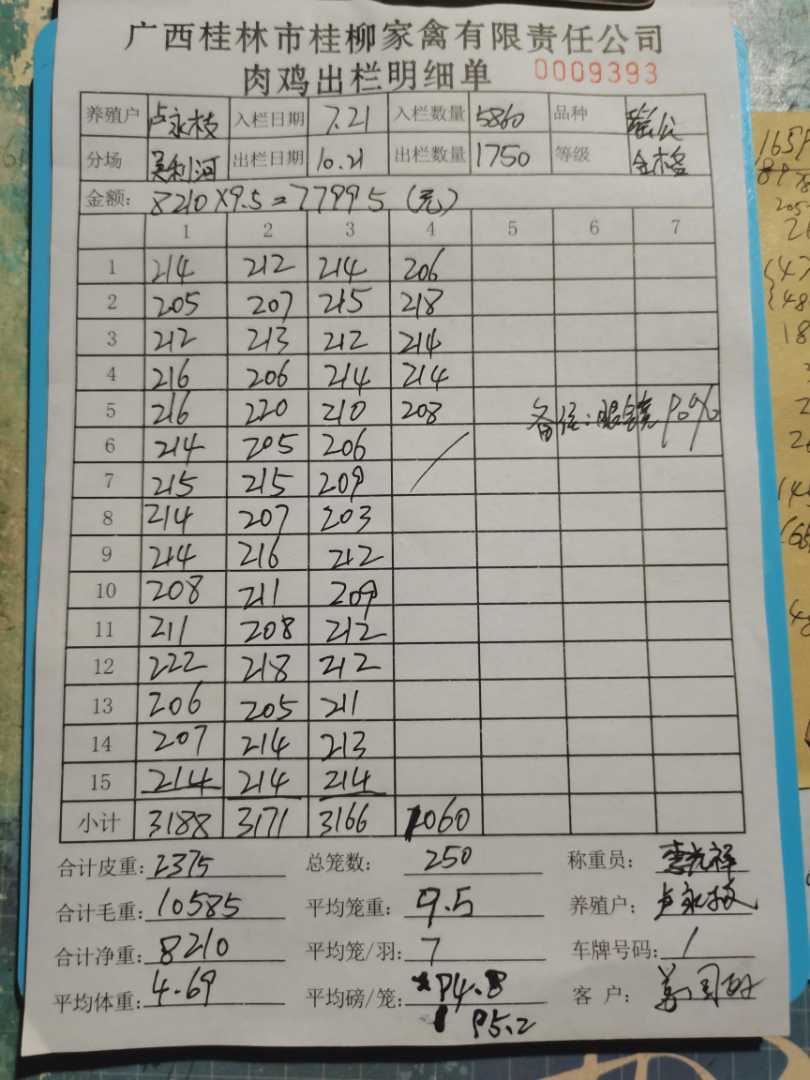 广西桂林市桂柳家禽有限责任公司
肉鸡出栏明细单 0009393
养殖户 卢永枝 入栏日期 7.21 入栏数量 5860 品种
分场 美利河 出栏日期 10.21 出栏数量 1750 等级 合格
金额: 8210×9.5=77995(元)
1 2 3 4 5 6 7
1 214 212 214 206
2 205 207 215 218
3 212 213 212 214
4 216 206 214 214
5 216 220 210 208 备注:眼镜90%
6 214 205 206 /
7 215 215 209
8 214 207 203
9 214 216 212
10 208 211 209
11 211 208 212
12 222 218 212
13 206 205 211
14 207 214 213
15 214 214 214
小计 3188 3171 3166 1060
合计皮重: 2375 总笼数: 250 称重员:
合计毛重: 10585 平均笼重: 9.5 养殖户: 卢永枝
合计净重: 8210 平均笼/羽: 7 车牌号码: /
平均体重: 4.69 平均磅/笼: 94.8 客户:
95.2